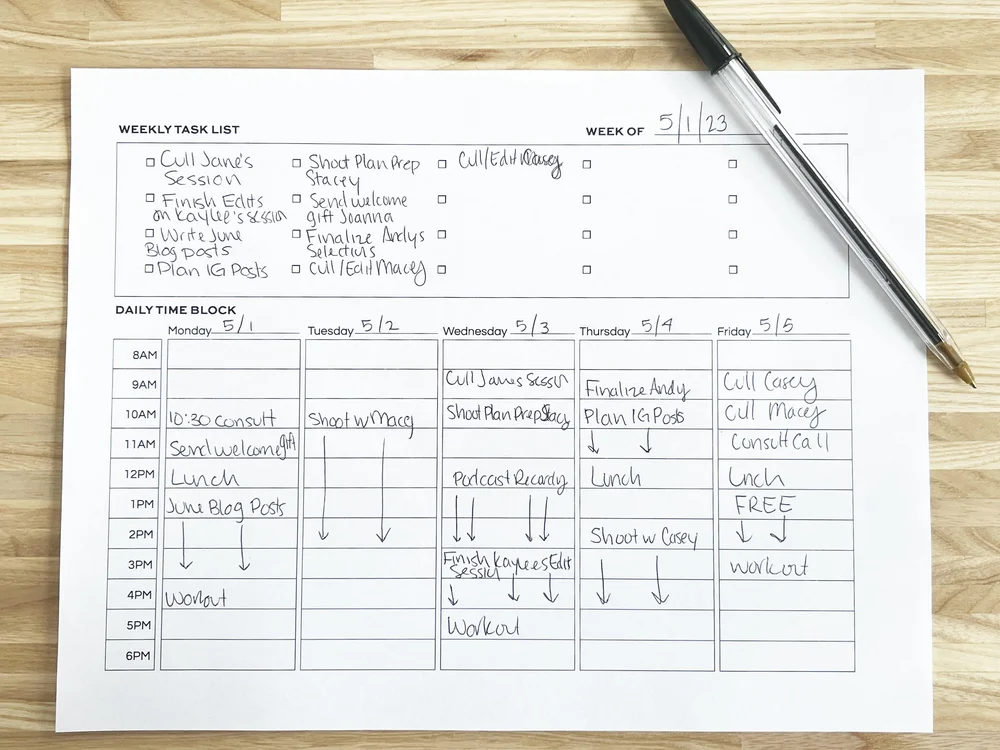 WEEKLY TASK LIST
WEEK OF 5/1/23
Cull Jane's
Session
Finish Edits
on Kaylee's session
Write June
Blog posts
Plan IG Posts
Shoot Plan Prep
Stacey
Send welcome
gift Joanna
Finalize Andys
Cull/Edit Macey
Cull/Edit Casey
DAILY TIME BLOCK
Monday 5/1 Tuesday 5/2 Wednesday 5/3 Thursday 5/4 Friday 5/5
8AM
9AM Cull Janes Finalize Andy Cull Casey
10AM 10:30 consult Shoot w Macy Shoot Plan Prep Plan IG Posts Cull Macey
11AM Send welcome gift Consult Call
12PM Lunch Podcast Lunch Lnch
1PM June Blog Posts FREE
2PM Shoot w Casey
3PM Finish Kaylees Edit workout
4PM
5PM Workout
6PM